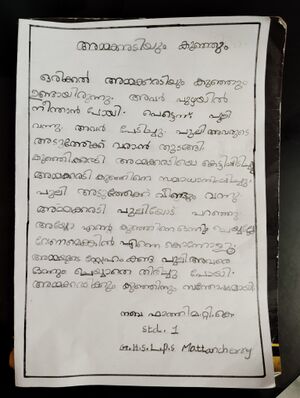 അമ്മക്കരടിയും കുഞ്ഞും
ഒരിക്കൽ അമ്മക്കരടിയും കുഞ്ഞും
ഉണ്ടായിരുന്നു. അവർ പുഴയിൽ
നീന്താൻ പോയി. പെട്ടെന്ന് പുലി
വന്നു. അവർ പേടിച്ചു. പുലി അവരുടെ
അടുത്തേക്ക് വരാൻ തുടങ്ങി.
കുഞ്ഞിക്കരടി അമ്മക്കരടിയെ കെട്ടിപ്പിടിച്ചു
അമ്മക്കരടി കുഞ്ഞിനെ സമാധാനിപ്പിച്ചു.
പുലി അടുത്തേക്ക് വീണ്ടും വന്നു.
അമ്മക്കരടി പുലിയോട് പറഞ്ഞു
എന്റെ കുഞ്ഞിനെ ഒന്നും ചെയ്യല്ലേ
വേണമെങ്കിൽ എന്നെ കൊന്നോളൂ.
അമ്മയുടെ സ്നേഹം കണ്ട പുലി അവരെ
ഒന്നും ചെയ്യാതെ തിരിച്ചു പോയി.
അമ്മക്കരടിക്കും കുഞ്ഞിനും സന്തോഷമായി.
ഫാത്തിമ
std. 1
G.H.S.L.P.S Mattancherry